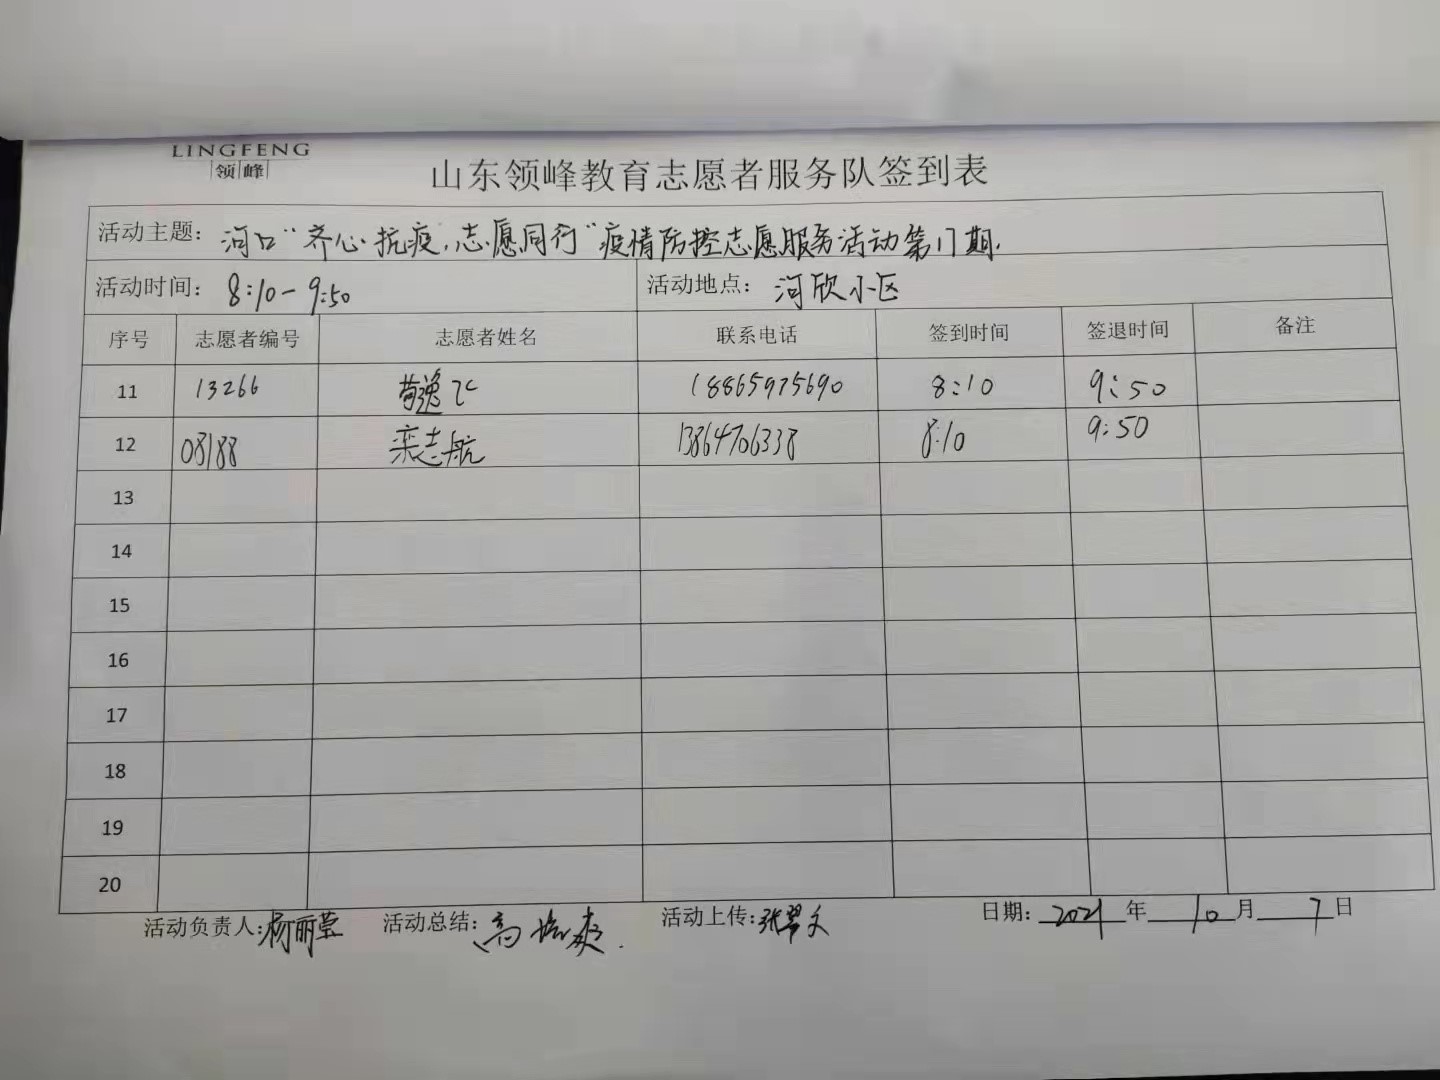 LINGFENG
领峰
山东领峰教育志愿者服务队签到表
活动主题: 河口“齐心抗疫,志愿同行”疫情防控志愿服务活动第17期.
活动时间: 8:10-9:50 活动地点: 河欣小区
序号 志愿者编号 志愿者姓名 联系电话 签到时间 签退时间 备注
11 13266 18865975690 8:10 9:50
12 08188 栾志航 13864706338 8:10 9:50
13
14
15
16
17
18
19
20
活动负责人:杨丽莹 活动总结:高 爽. 活动上传:张翠文 日期: 2021年10月7日